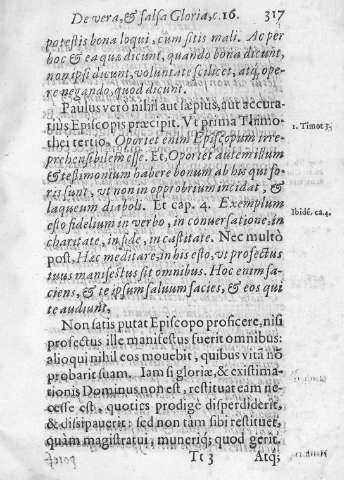 De vera, & falsa Gloria, c. 16. 317
potestis bona loqui, cum sitis mali. Ac per
hoc & ea quæ dicunt, quando bona dicunt,
non ipsi dicunt, voluntate scilicet, atq, ope
re negando, quod dicunt.
Paulus verò nihil aut sæpius, aut accura-
tiùs Episcopis præcipit. Vt prima Timo-
thei tertio, Oportet enim Episcopum irre-
prehensibilem esse. Et, Oportet autem illum
& testimonium habere bonum ab his qui fo-
ris sunt, vt non in opprobrium incidat, &
laqueum diaboli. Et cap. 4. Exemplum
esto fidelium in verbo, in conuersatione, in
charitate, in fide, in castitate. Nec multò
post, Hæc meditare, in his esto, vt profectus
tuus manifestus sit omnibus. Hoc enim fa-
ciens, & te ipsum saluum facies, & eos qui
te audiunt.
Non satis putat Episcopo proficere, nisi
profectus ille manifestus fuerit omnibus:
alioqui nihil eos mouebit, quibus vitā nō
probarit suam. Iam si gloriæ, & existima-
tionis Dominus non est, restituat eam ne-
cesse est, quoties prodigè disperdiderit,
& dissipauerit: sed non tam sibi restituet,
quàm magistratui, muneriq; quod gerit.
Tt 3 Atq;
1. Timot 3.
Ibidē. ca. 4.